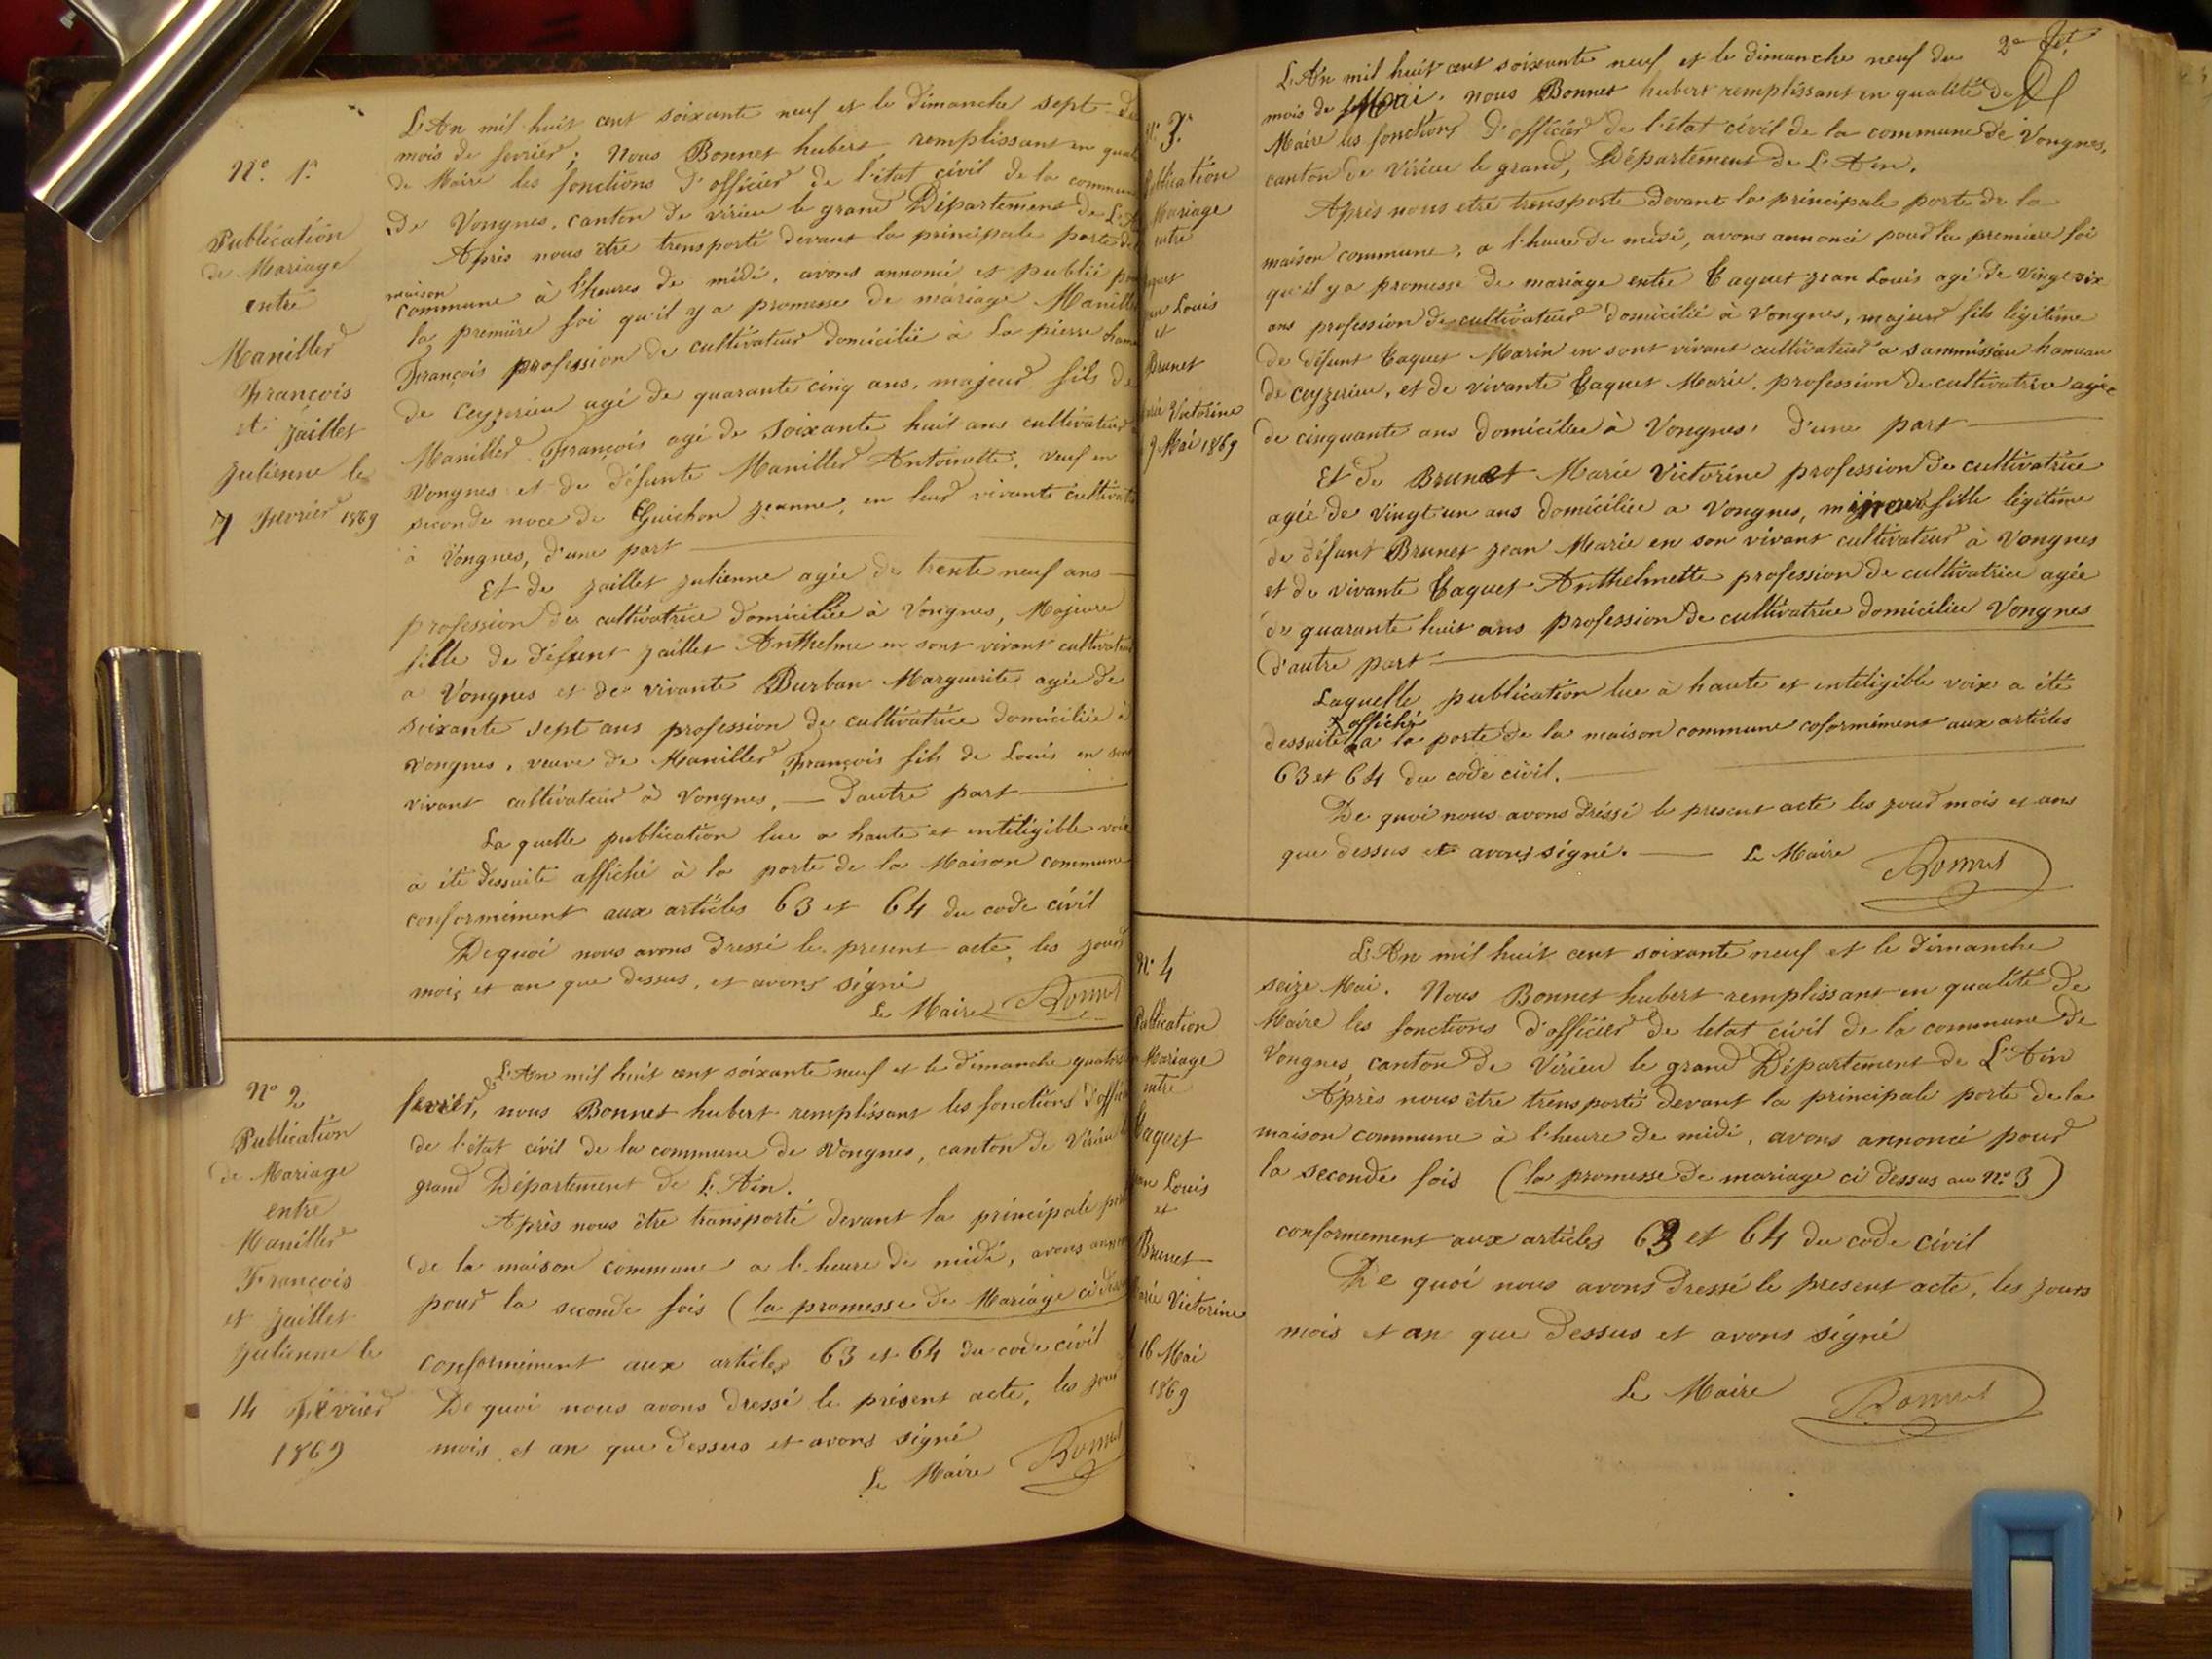 N° 1.
Publication
de Mariage
entre
Maniller
François
et Jaillet
Julienne le
7 Fevrier 1869
L'An mil huit cent soixante neuf et le dimanche sept du
mois de fevrier; Nous Bonnet hubert remplissant en
de Maire les fonctions d'officier de l'état civil de la
de Vongnes, canton de virieu le grand Département de
Après nous être trensporté devant la principale porte
maison
commune à l'heures de midi, avons annoncé et publié
la première foi qu'il y a promesse de mariage
François profession de cultivateur domicilié à La pierre
de Ceyzerieu agé de quarante cinq ans, majeur fils de
Maniller François agé de soixante huit ans cultivateur
Vongnes et de défunte Maniller Antoinette, veuf en
seconde noce de Guichon Jeanne, en leur vivante
à Vongnes, d'une part
Et de Jaillet Julienne agée de trente neuf ans
profession de cultivatrice domiciliée à Vongnes, Majeure
fille de défunt Jaillet Anthelme en sont vivant
a Vongnes et de vivante Burban Marguerite agée de
soixante sept ans profession de cultivatrice domiciliée à
Vongnes, veuve de Maniller François fils de Louis en
vivant cultivateur à Vongnes, — d'autre part
La quelle publication lue a haute et inteligible voix
a été dessuite affiché à la porte de la Maison commune
conformément aux articles 63 et 64 du code civil
De quoi nous avons dressé le present acte, les jour
mois et an que dessus, et avons signé
Le Maire Bonnet
N° 2
Publication
de Mariage
entre
Maniller
François
et Jaillet
Julienne le
14 Février
1869
L'An mil huit cent soixante neuf et le dimanche
de
fevrier, nous Bonnet hubert remplissant les fonctions
de l'état civil de la commune de Vongnes, canton de Virieu
grand Département de L'Ain.
Après nous être transporté devant la principale
de la maison commune a l'heure de midi, avons
pour la seconde fois (la promesse de Mariage ci
conformément aux articles 63 et 64 du code civil
De quoi nous avons dressé le présent acte, les jour
mois et an que dessus et avons signé
Le Maire Bonnet
N° 3.
Mariage
entre
Louis
et
Brunet
Victorine
9 Mai 1869
L'An mil huit cent soixante neuf et le dimanche neuf du
mois de Mai. nous Bonnet hubert remplissant en qualité de
Maire les fonctions d'officier de l'état civil de la commune de Vongnes,
canton de Virieu le grand, Département de L'Ain.
Après nous etre trensporté devant la principale porte de la
maison commune, a l'heure de midi, avons annoncé pour la premiere foi
qu'il y a promesse de mariage entre Caquet Jean Louis agé de vingt six
ans profession de cultivateur domicilié à Vongnes, majeur fils légitime
de défunt Caquet Marin en sont vivant cultivateur a sammissieu hameau
de ceyzerieu, et de vivante Caquet Marie, profession de cultivatrice agée
de cinquante ans domiciliée à Vongnes, d'une part
Et de Brunet Marie Victorine profession de cultivatrice
agée de vingt un ans domiciliée a Vongnes, fille légitime
de défunt Brunet Jean Marie en son vivant cultivateur à Vongnes
et de vivante Caquet Anthelmette profession de cultivatrice agée
de quarante huit ans profession de cultivatrice domiciliée Vongnes
d'autre part
Laquelle publication lue à haute et inteligible voix a été
x affiché
dessuite x a la porte de la maison commune coformément aux articles
63 et 64 du code civil.
De quoi nous avons dréssé le present acte les jour mois et ans
que dessus et avons signé. — Le Maire Bonnet
N° 4
Publication
Mariage
entre
Caquet
Louis
et
Brunet
Victorine
16 Mai
1869
L'An mil huit cent soixante neuf et le dimanche
seize Mai. Nous Bonnet hubert remplissant en qualité de
Maire les fonctions d'officier de letat civil de la commune de
Vongnes, canton de Virieu le grand Département de L'Ain
Après nous être trensporté devant la principale porte de la
maison commune à l'heure de midi, avons annoncé pour
la seconde fois (la promesse de mariage ci dessus au N° 3)
conformement aux articles 63 et 64 du code civil
De quoi nous avons dressé le present acte, les jours
mois et an que dessus et avons signé
Le Maire Bonnet